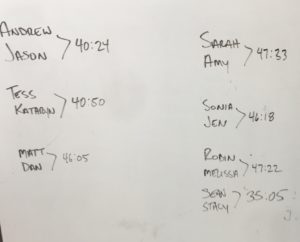 Andrew
Jason
40:24
Tess
40:50
Matt
Dan
46:05
Sarah
Amy
47:33
Sonia
Jen
46:18
Robin
Melissa
47:22
Sean
Stacy
35:05